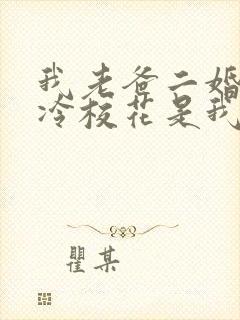 我老爸二婚
冷校花是我
瞿某